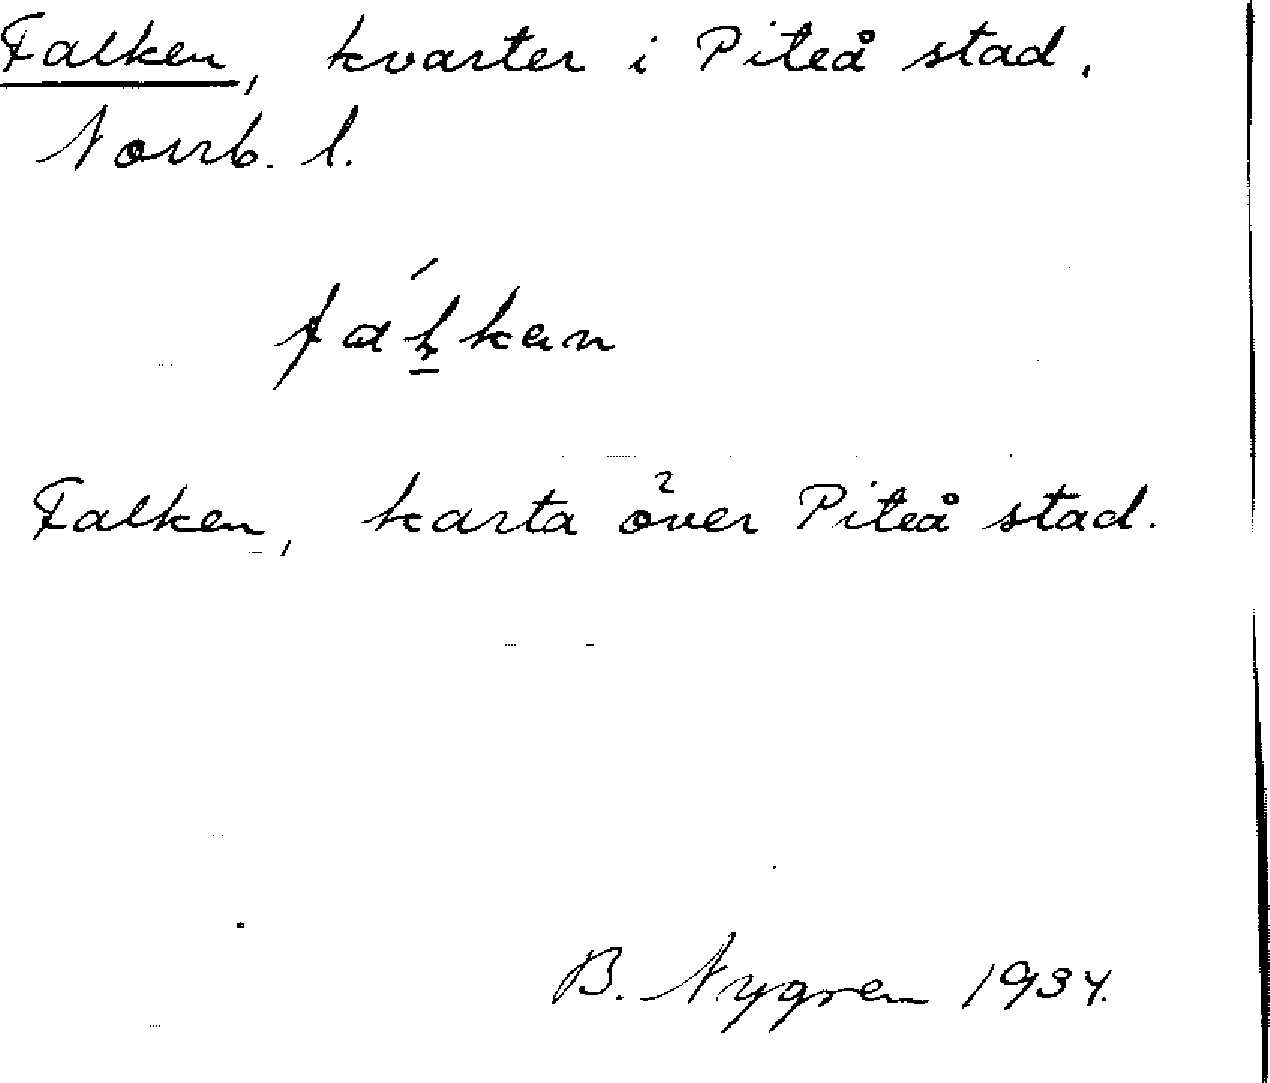 Falken, kvarter i Piteå stad,
Norrb. l.
Falken, karta över Piteå stad.
B. Nygren 1934.